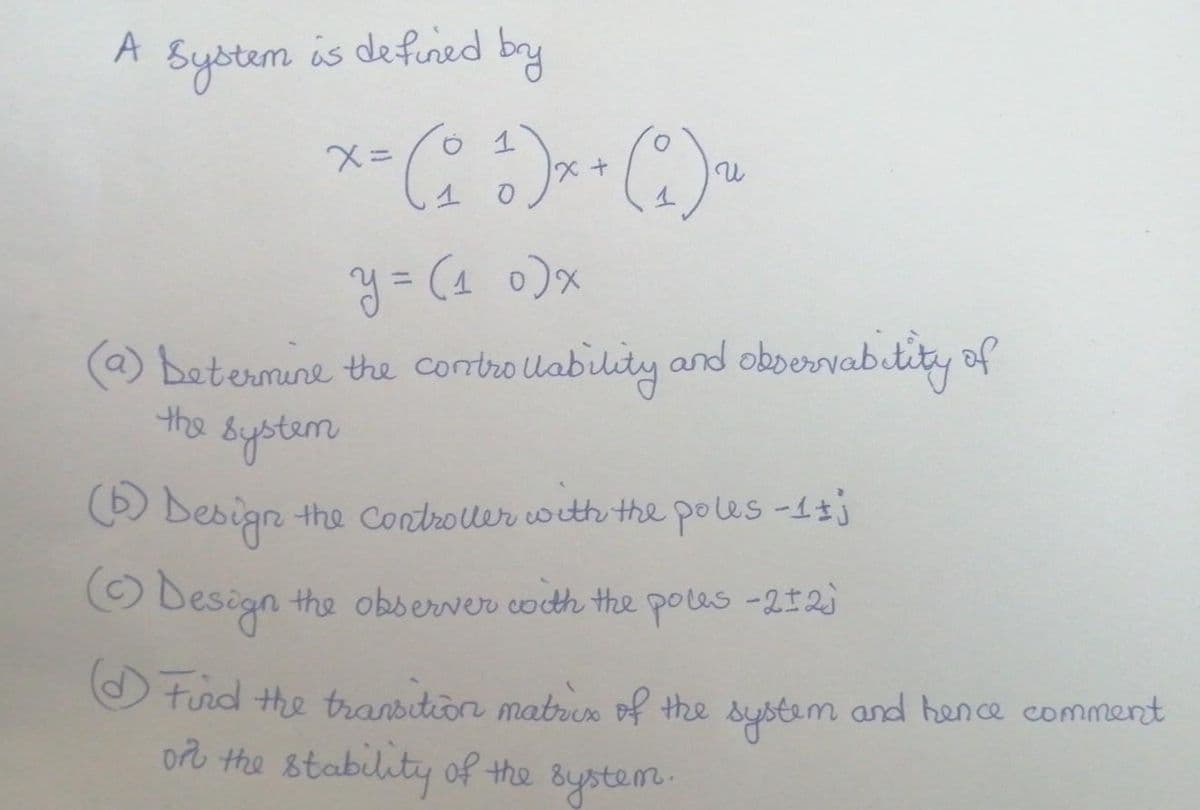 A System is defined by
x = (0 1
1 0) x + (0
1) u
y = (1 0)x
(a) Determine the controllability and observability of
the system
(b) Design the controller with the poles -1±j
(c) Design the observer with the poles -2±2j
(d) Find the transition matrix of the system and hence comment
on the stability of the system.